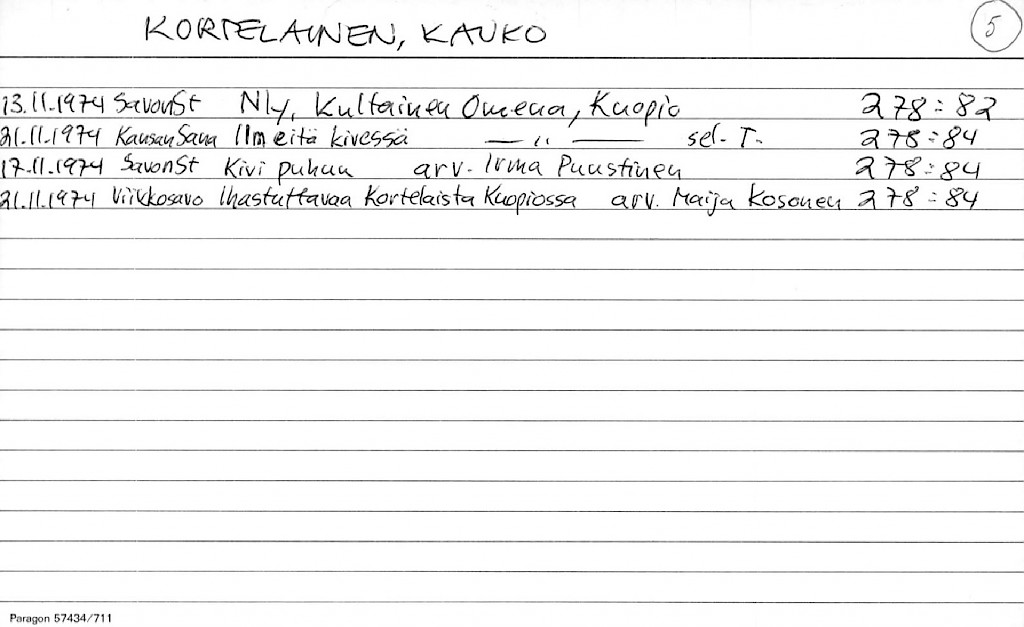 KORTELAINEN, KAUKO
5
13.11.1974 SavonSt Nly, Kultainen Omena, Kuopio 278:82
21.11.1974 KansanSana Ilmeitä kivessä — " — sel. T. 278:84
17.11.1974 SavonSt Kivi puhuu arv. Irma Puustinen 278:84
21.11.1974 Viikkosavo Ihastuttavaa Kortelaista Kuopiossa arv. Maija Kosonen 278:84
Paragon 57434/711